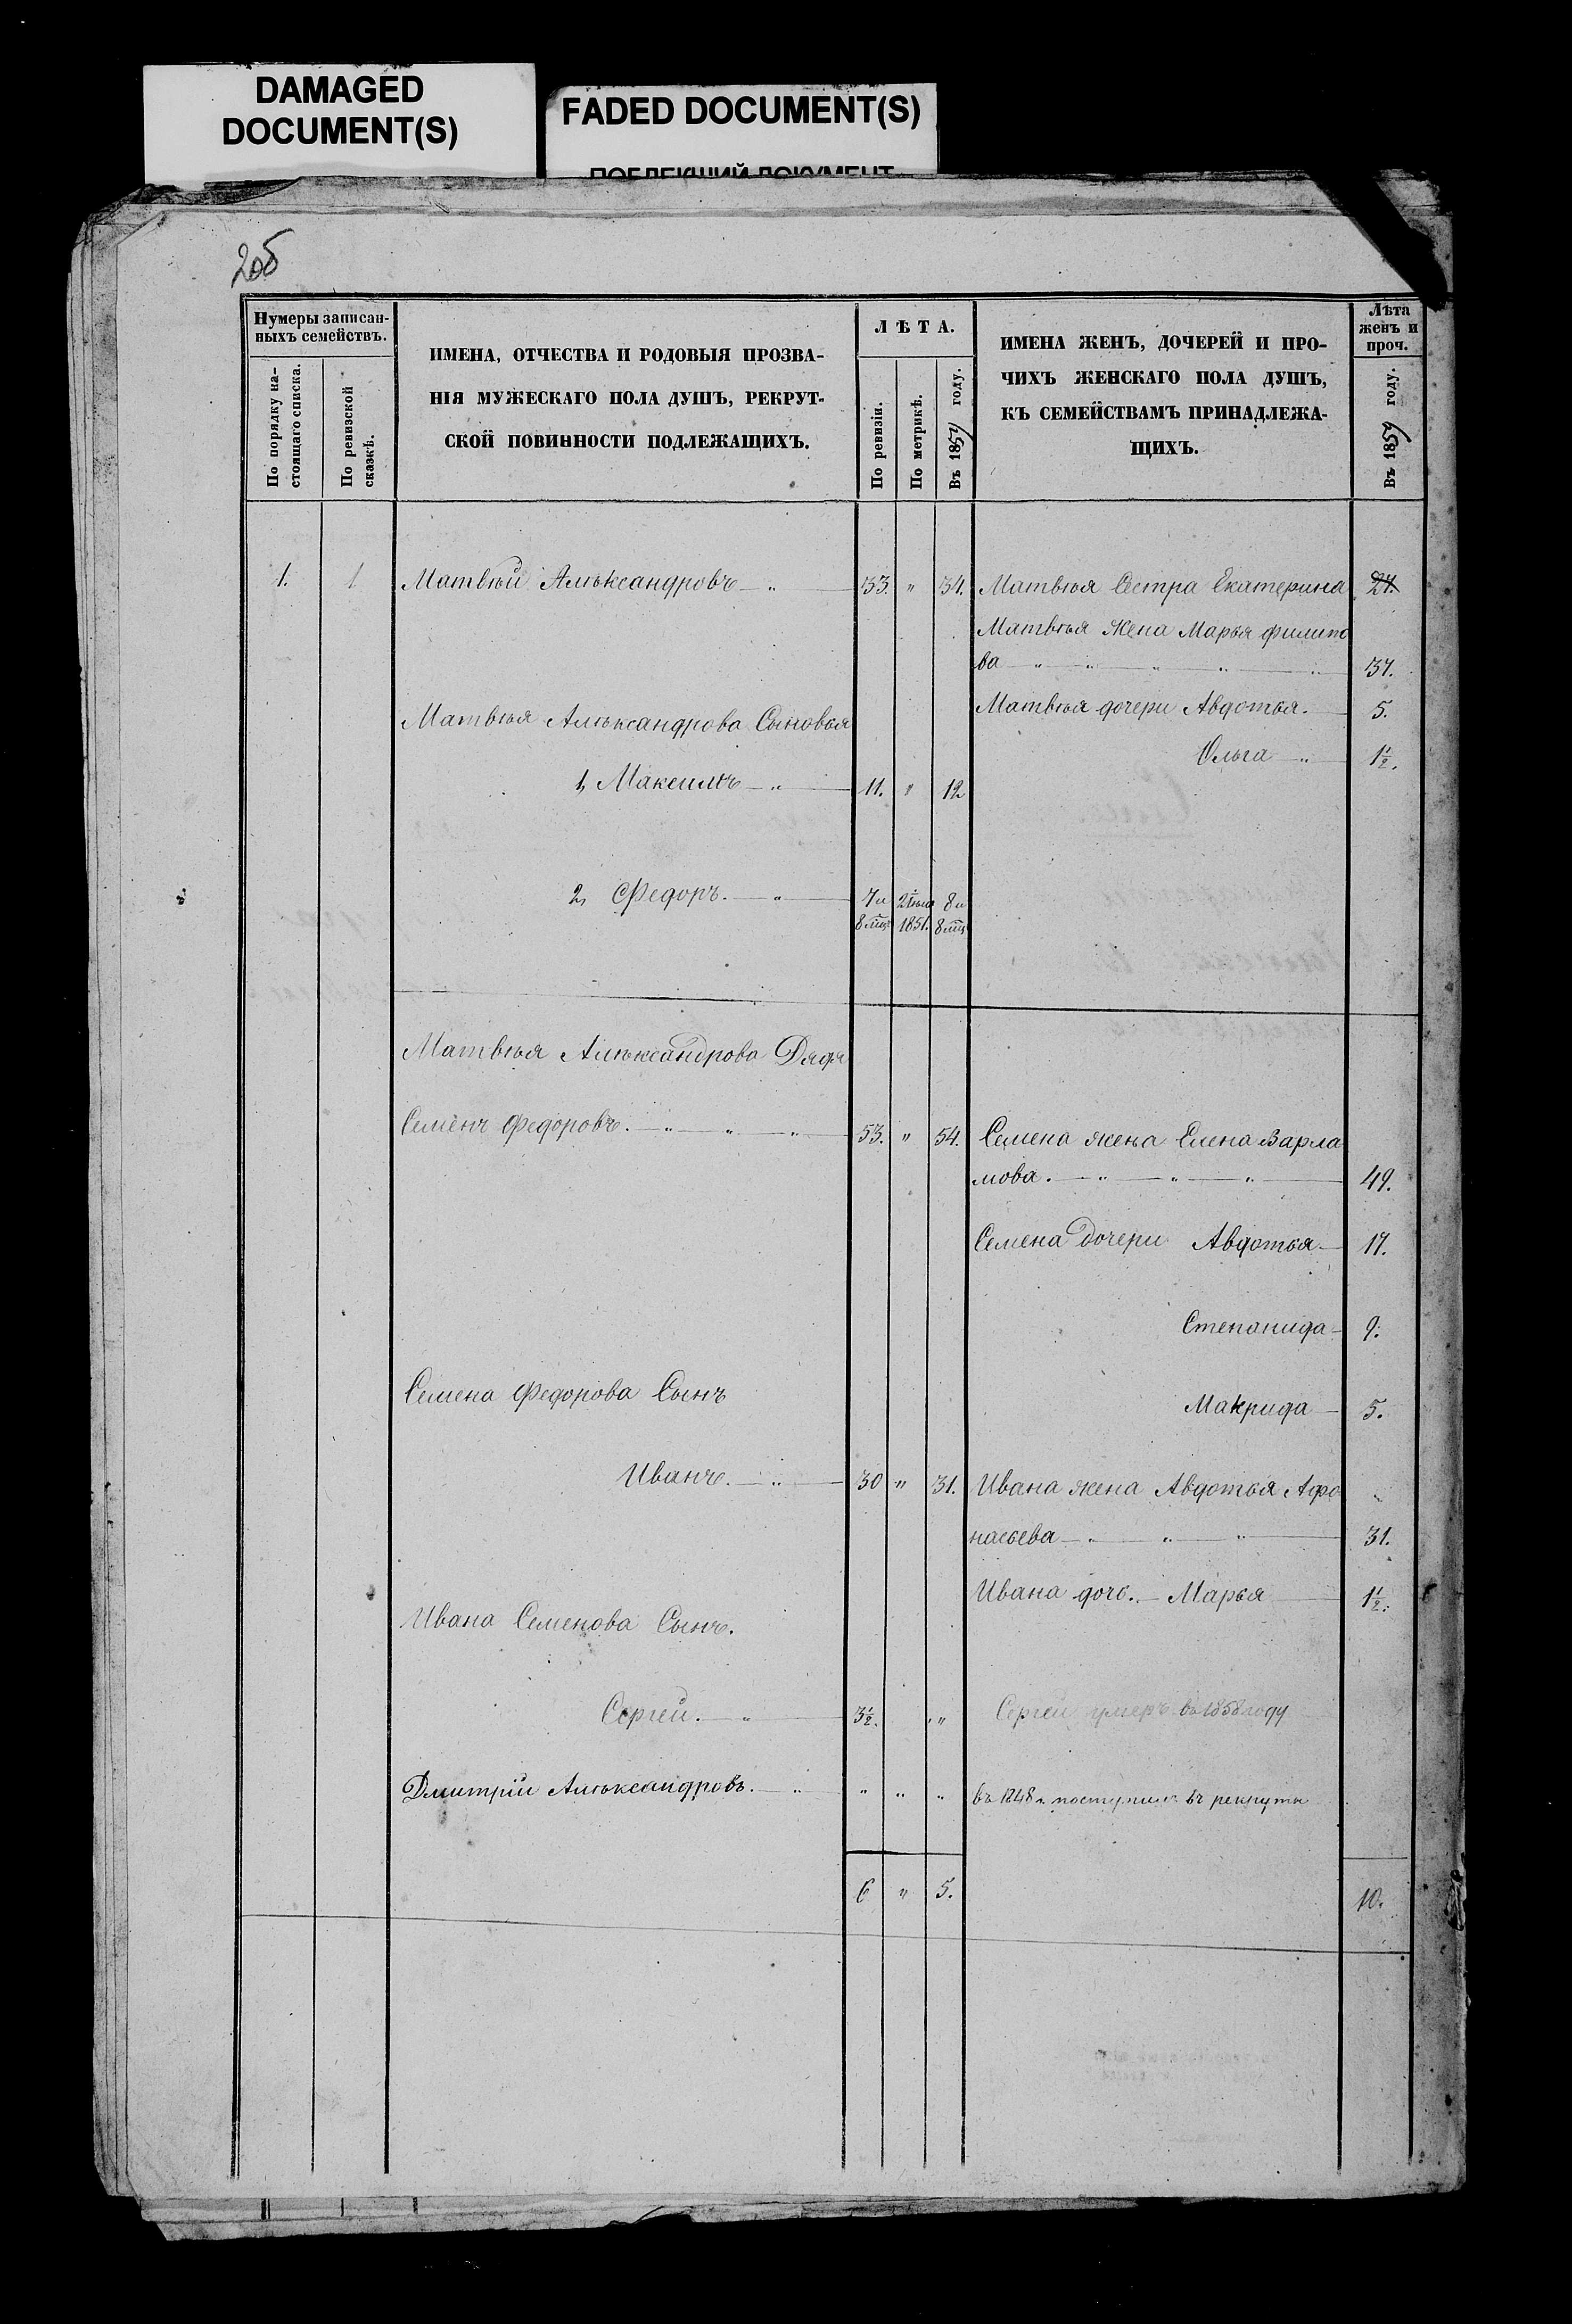 DAMAGED
DOCUMENT(S)
FADED DOCUMENT(S)
ПОБЛЕКШИЙ ДОКУМЕНТ
2об
Нумеры записан-
ныхъ семействъ.
По порядку на-
стоящаго списка.
По ревизской
сказкѣ.
ИМЕНА, ОТЧЕСТВА И РОДОВЫЯ ПРОЗВА-
НІЯ МУЖЕСКАГО ПОЛА ДУШЪ, РЕКРУТ-
СКОЙ ПОВИННОСТИ ПОДЛЕЖАЩИХЪ.
ЛѢТА.
По ревизіи.
По метрикѣ.
Въ 1859 году.
ИМЕНА ЖЕНЪ, ДОЧЕРЕЙ И ПРО-
ЧИХЪ ЖЕНСКАГО ПОЛА ДУШЪ,
КЪ СЕМЕЙСТВАМЪ ПРИНАДЛЕЖА-
ЩИХЪ.
Лѣта
женъ и
проч.
Въ 1859 году.
1. 1 Матвѣй Алѣксандровъ — " — 33. " 34. Матвѣя Сестра Екатерина
Матвѣя жена Марья Филипо
ва — " — " — " — " — " 37.
Матвѣя Алѣксандрова Сыновья
Матвѣя дочери Авдотья. — 5.
Ольга — " — 1½.
1, Максимъ — " — 11. " 12
2, Федоръ. — " — 7 и 8 и
8 мѣц 1851. 8 мѣц
Матвѣя Алѣксандрова Дядя
Семенъ Федоровъ. — " — " — " — 53. " 54. Семена жена Елена Варла
мова. — " — " — " — 49.
Семена дочери Авдотья — 17.
Степанида — 9.
Семена Федорова Сынъ
Макрида — 5.
Иванъ. — " — 30 " 31. Ивана жена Авдотья Афо "
насьева — " — " — " — 31.
Ивана дочь. — Марья — 1½.
Ивана Семенова Сынъ.
Сергей. — " — 3½. " Сергей умеръ въ 1858 году
Дмитрій Алѣксандровъ. — " — " " " въ 1848 г. поступилъ въ рекруты
6 " 5. 10.